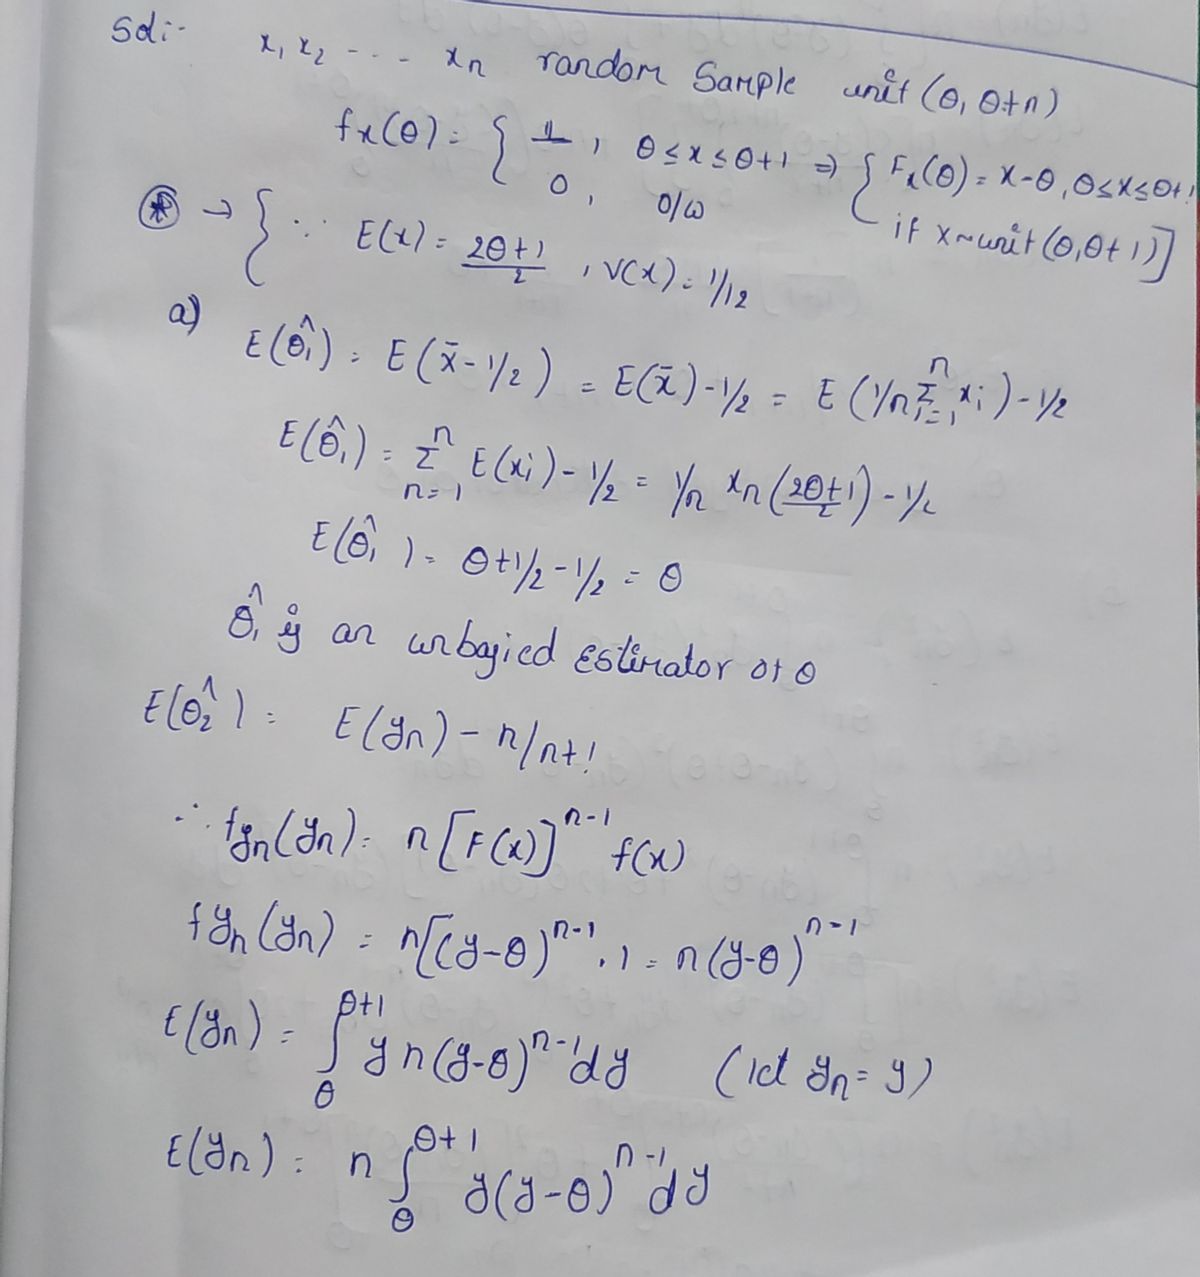 Sol:-
x₁ x₂ --- xn random Sample unif (θ, θ+n)
fx(θ) = { 1/1, θ ≤ x ≤ θ+1 ⇒ { Fx(θ) = x-θ, θ≤x≤θ+1
0, o/w if x~unif (θ, θ+1)]
⊛ → { ∵ E(x) = (2θ+1)/2, V(x) = 1/12
a)
E(θ̂₁) = E(x̄ - 1/2) = E(x̄) - 1/2 = E(1/n Σ_{i=1}^{n} xi) - 1/2
E(θ̂₁) = Σ_{n=1}^{n} E(xi) - 1/2 = 1/n × n((2θ+1)/2) - 1/2
E(θ̂₁) = θ + 1/2 - 1/2 = θ
θ̂₁ is an unbajied Estimator of θ
E(θ̂₂) = E(yn) - n/n+1
∴ fyn(yn) = n[F(x)]^{n-1} f(x)
fyn(yn) = n[(y-θ)^{n-1} . 1 = n(y-θ)^{n-1}
E(yn) = ∫_{θ}^{θ+1} y n(y-θ)^{n-1} dy (let yn = y)
E(yn) = n ∫_{θ}^{θ+1} y(y-θ)^{n-1} dy